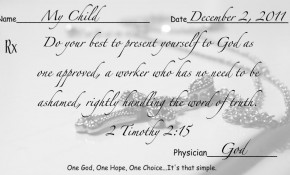 Name My Child Date December 2, 2011
Rx Do your best to present yourself to God as
one approved, a worker who has no need to be
ashamed, rightly handling the word of truth.
2 Timothy 2:15
Physician God
One God, One Hope, One Choice...It's that simple.